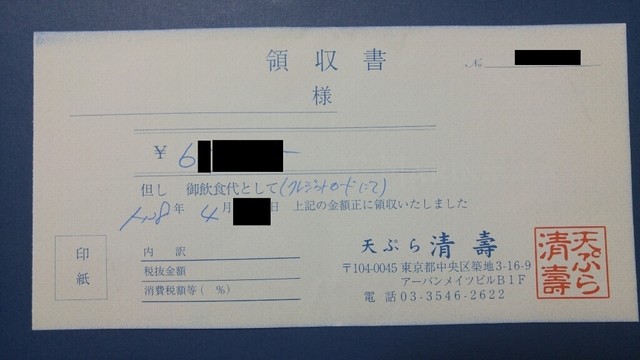 領収書
№
様
￥ 6
但し 御飲食代として(クレジットカードにて)
年 4月 日 上記の金額正に領収いたしました
印紙
内訳
税抜金額
消費税額等( %)
天ぷら 清壽
〒104-0045 東京都中央区築地3-16-9
アーバンメイツビルB1F
電話 03-3546-2622
天ぷら
清壽